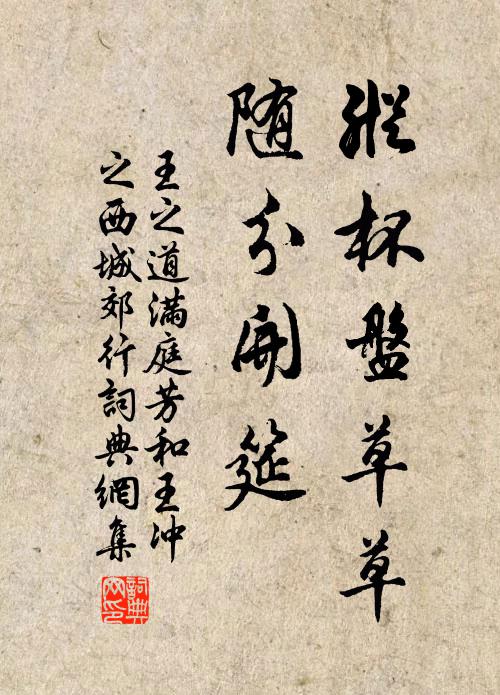 縱杯盤草草
随分開筵
王之道滿庭芳和王冲
之西城郊行詞典網集
詞典
网印